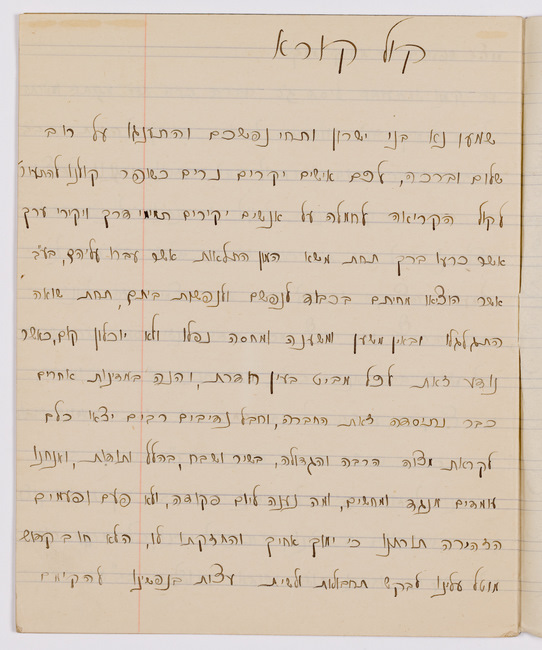 קול קורא
שמעו נא בני ישרון ותחי נפשכם והתענגו על רוב
שלום וברכה, לכם אישים יקרים נרים כשופר קולנו להתעורר
לקול הקריאה לחמלה על אנשים יקירים תמימי דרך ויקירי ערך
אשר כרעו ברך תחת משא המון התלאות אשר עברו עליהם, בע"ב
אשר הוציאו מחיתם בכבוד לנפשם ולנפשות ביתם, תחת שואה
התגלגלו ובאין משען ומשענה ומחסה נפלו ולא יוכלון קום, כאשר
נודע זאת לכל מביט בעין חודרת, והנה במדינות אחרים
כבר נתיסדה זאת החברה, וחבל נדיבים רבים יצאו כלם
לקראת מצוה הרבה והגדולה, בשיר ושבח, בהלל ותודות, ואנחנו
עומדים מנגד ומחשים, ומה נענה ליום פקודה, ולא פעם ופעמים
הזהירה תורתנו כי ימוך אחיך והחזקת בו, הלא חוב קדוש
מוטל עלינו לבקש תחבולות ולשית עצות בנפשינו להקימם